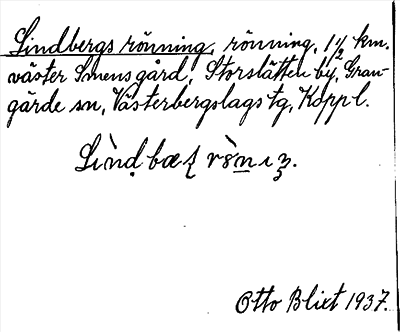 Lindbergs rönning, rönning, 1½ km.
väster Smens gård, Storslätten by, Gran-
gärde sn, Västerbergslags tg, Koppl.
Otto Blixt 1937.